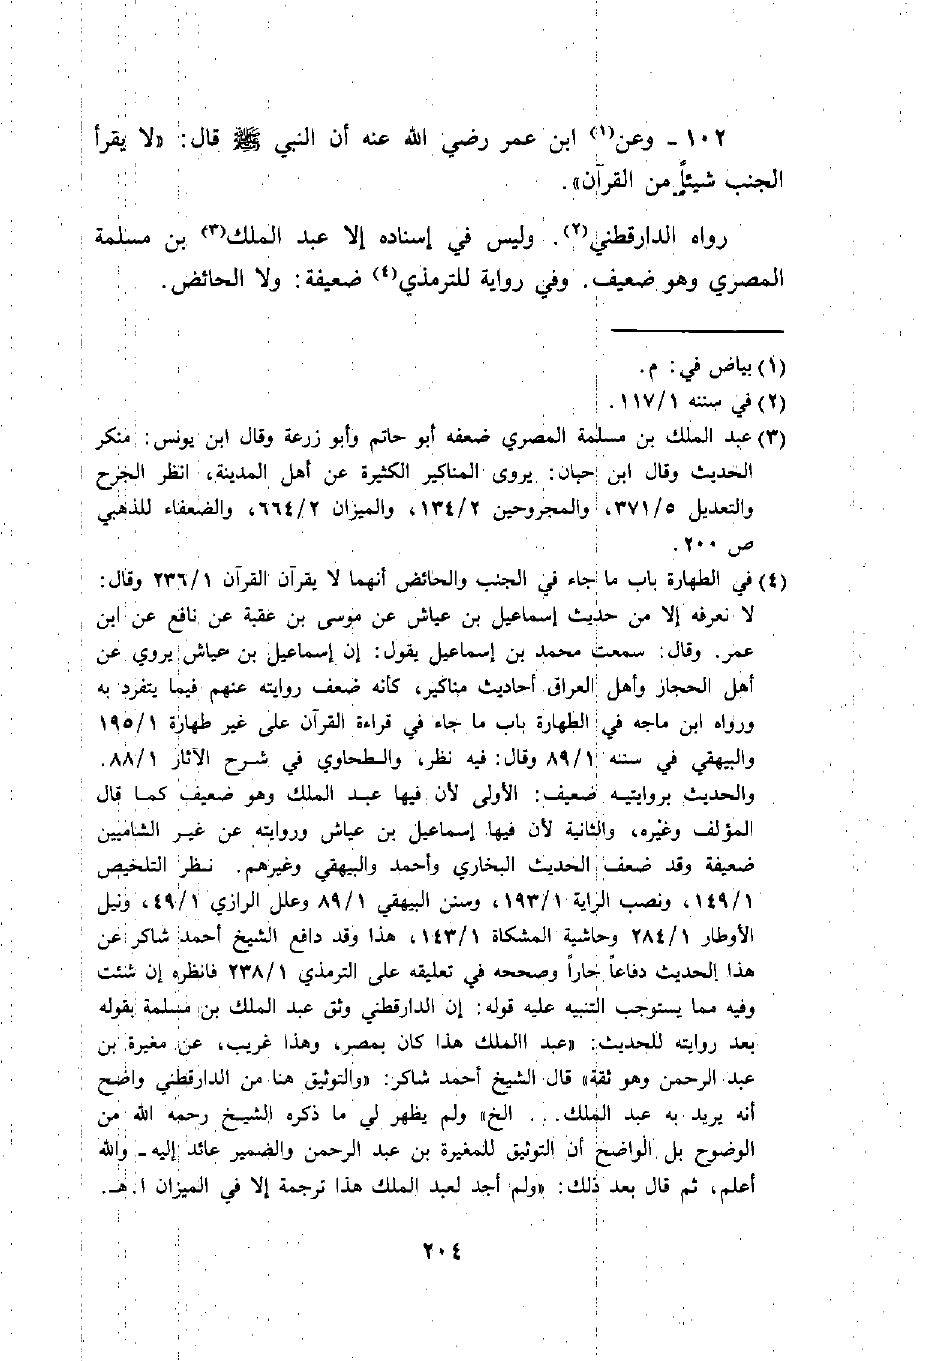 ١٠٢ - وعن(١) ابن عمر رضي الله عنه أن النبي ﷺ قال: «لا يقرأ
الجنب شيئاً من القرآن».
رواه الدارقطني(٢). وليس في إسناده إلا عبد الملك(٣) بن مسلمة
المصري وهو ضعيف. وفي رواية للترمذي(٤) ضعيفة: ولا الحائض.
(١) بياض في: م.
(٢) في سننه ١١٧/١.
(٣) عبد الملك بن مسلمة المصري ضعفه أبو حاتم وأبو زرعة وقال ابن يونس: منكر
الحديث وقال ابن حبان: يروى المناكير الكثيرة عن أهل المدينة، انظر الجرح
والتعديل ٣٧١/٥، والمجروحين ١٣٤/٢، والميزان ٦٦٤/٢، والضعفاء للذهبي
ص ٢٠٠.
(٤) في الطهارة باب ما جاء في الجنب والحائض أنهما لا يقرآن القرآن ٢٣٦/١ وقال:
لا نعرفه إلا من حديث إسماعيل بن عياش عن موسى بن عقبة عن نافع عن ابن
عمر. وقال: سمعت محمد بن إسماعيل يقول: إن إسماعيل بن عياش يروي عن
أهل الحجاز وأهل العراق أحاديث مناكير، كأنه ضعف روايته عنهم فيما يتفرد به
ورواه ابن ماجه في الطهارة باب ما جاء في قراءة القرآن على غير طهارة ١٩٥/١
والبيهقي في سننه ٨٩/١ وقال: فيه نظر، والطحاوي في شرح الآثار ٨٨/١.
والحديث بروايتيه ضعيف: الأولى لأن فيها عبد الملك وهو ضعيف كما قال
المؤلف وغيره، والثانية لأن فيها إسماعيل بن عياش وروايته عن غير الشاميين
ضعيفة وقد ضعف الحديث البخاري وأحمد والبيهقي وغيرهم. نظر التلخيص
١٤٩/١، ونصب الراية ١٩٣/١، وسنن البيهقي ٨٩/١ وعلل الرازي ٤٩/١، ونيل
الأوطار ٢٨٤/١ وحاشية المشكاة ١٤٣/١، هذا وقد دافع الشيخ أحمد شاكر عن
هذا الحديث دفاعاً حاراً وصححه في تعليقه على الترمذي ٢٣٨/١ فانظره إن شئت
وفيه مما يستوجب التنبيه عليه قوله: إن الدارقطني وثق عبد الملك بن مسلمة بقوله
بعد روايته للحديث: «عبد االملك هذا كان بمصر، وهذا غريب، عن مغيرة بن
عبد الرحمن وهو ثقة» قال الشيخ أحمد شاكر: «والتوثيق هنا من الدارقطني واضح
أنه يريد به عبد الملك... الخ» ولم يظهر لي ما ذكره الشيخ رحمه الله من
الوضوح بل الواضح أن التوثيق للمغيرة بن عبد الرحمن والضمير عائد إليه - والله
أعلم، ثم قال بعد ذلك: «ولم أجد لعبد الملك هذا ترجمة إلا في الميزان ا.هـ.
٢٠٤